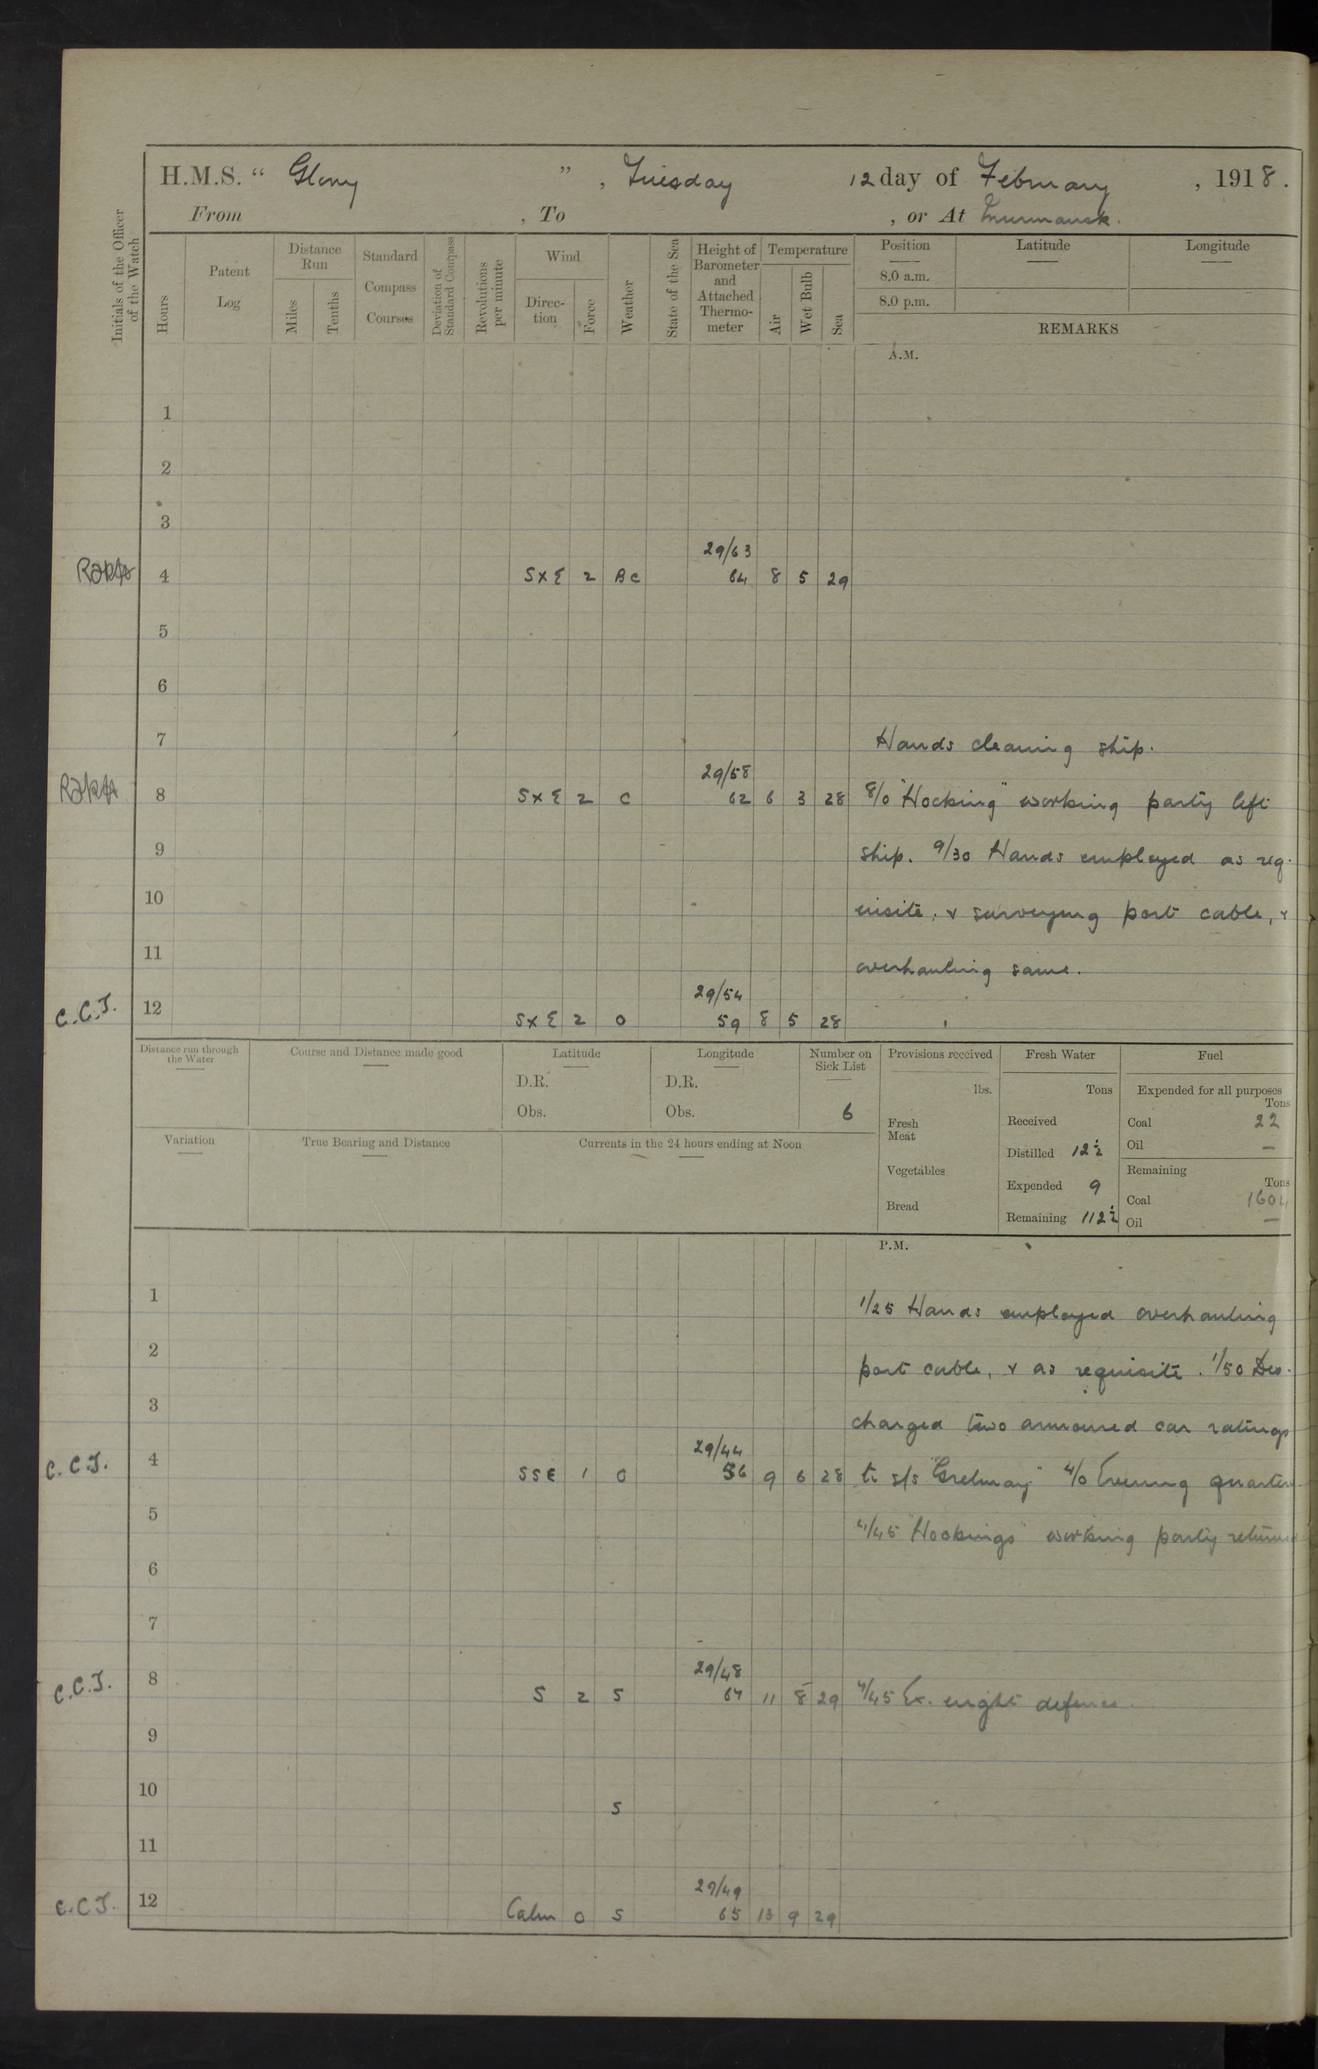 H.M.S. “ Glory ” , Tuesday 12 day of February , 1918 .
From , To , or At Murmansk.
Initials of the Officer of the Watch
Hours
Patent Log
Distance Run
Miles
Tenths
Standard Compass Courses
Deviation of Standard Compass
Revolutions per minute
Wind
Direc-tion
Force
Weather
State of the Sea
Height of Barometer and Attached Thermo-meter
Temperature
Air
Wet Bulb
Sea
Position Latitude Longitude
8.0 a.m.
8.0 p.m.
REMARKS
A.M.
1
2
3
29/63
4 SxE 2 BC 64 8 5 29
5
6
7 Hands cleaning ship.
29/58
8 SxE 2 C 62 6 3 28 8/0 "Hocking" working party left
9 ship. 9/30 Hands employed as req-
10 uisite, & surveying port cable, &
11 overhauling same.
29/54
C.C.J. 12 SxE 2 O 59 8 5 28
Distance run through the Water
Course and Distance made good
Latitude
D.R.
Obs.
Longitude
D.R.
Obs.
Number on Sick List
6
Provisions received
lbs.
Fresh Meat
Vegetables
Bread
Fresh Water
Tons
Received
Distilled 12½
Expended 9
Remaining 112½
Fuel
Expended for all purposes
Tons
Coal 22
Oil —
Remaining
Tons
Coal 1604
Oil —
Variation
True Bearing and Distance
Currents in the 24 hours ending at Noon
P.M.
1 1/25 Hands employed overhauling
2 port cable, & as requisite. 1/50 Dis-
3 charged two armoured car ratings
29/44
C.C.J. 4 SSE 1 O 56 9 6 28 to s/s "Grelmay" 4/0 Evening quarters
5 4/45 "Hockings" working party returned
6
7
29/48
C.C.J. 8 S 2 S 64 11 8 29 7/45 Ex. night defence.
9
10 S
11
29/49
C.C.J. 12 Calm 0 S 65 13 9 29